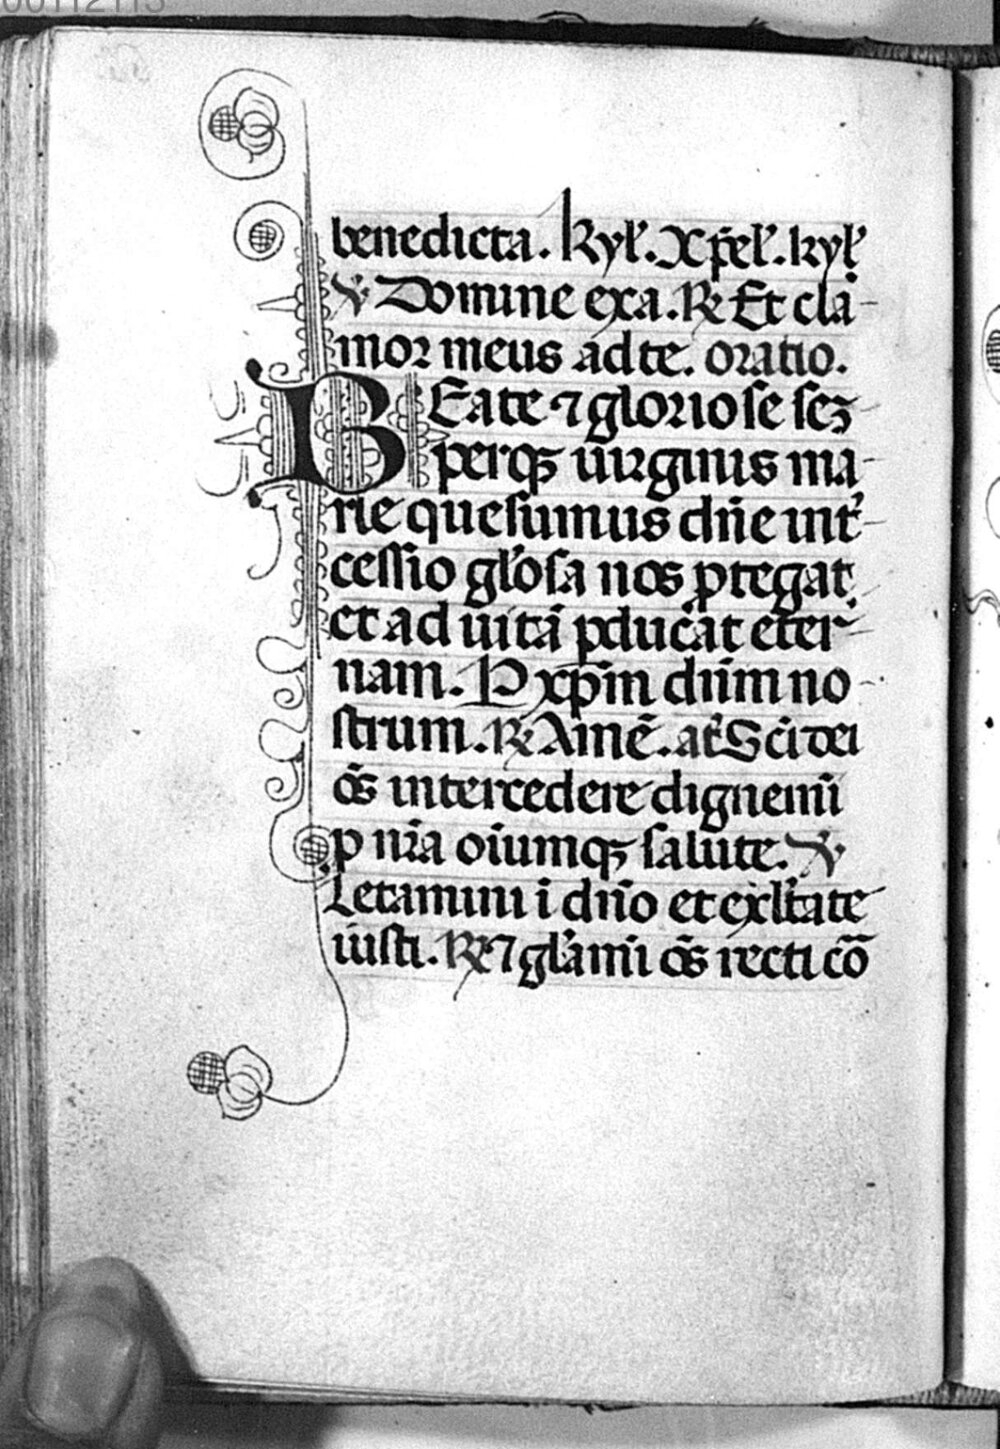 00112113
benedicta. kyrl̃. Xp̃el̃. kyrl̃
℣ Domine exa. ℟ Et cla
mor meus ad te. oratio.
BEate ⁊ gloriose sẽ
perqꝫ uirginis ma
rie quesumus dñe int̾
cessio gl̃osa nos ꝓtegat
et ad uitã ꝑducat eter
nam. P xp̃m dñm no
strum. ℟ Amẽ. añ Sc̃i dei
õs intercedere dignemĩ
ꝓ nr̃a oĩumqꝫ salute. ℣
Letamini ĩ dño et exl̃tate
iusti. ℟ ⁊ gl̃amĩ õs recti cõ